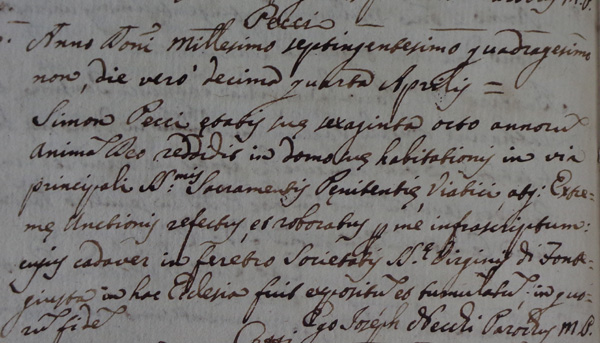 Pecci
Anno Dom̄i millesimo septingentesimo quadragesimo
non, die vero decima quarta Aprilis =
Simon Pecci ętatis suę sexaginta octo annorū
animā Deo reddidit in domo suę habitationis in via
principali S.mis Sacramentis Pęnitentię, Viatici atq: Extre=
mę Unctionis refectus, et roboratus p me infrascriptum:
cujus cadaver in feretro Societatis B.ę Virginis di Fonte=
giusta in hac Ecclesia fuit expositū et tumulatū, in quo=
rū fidē
Ego Joseph Parochus m.p.